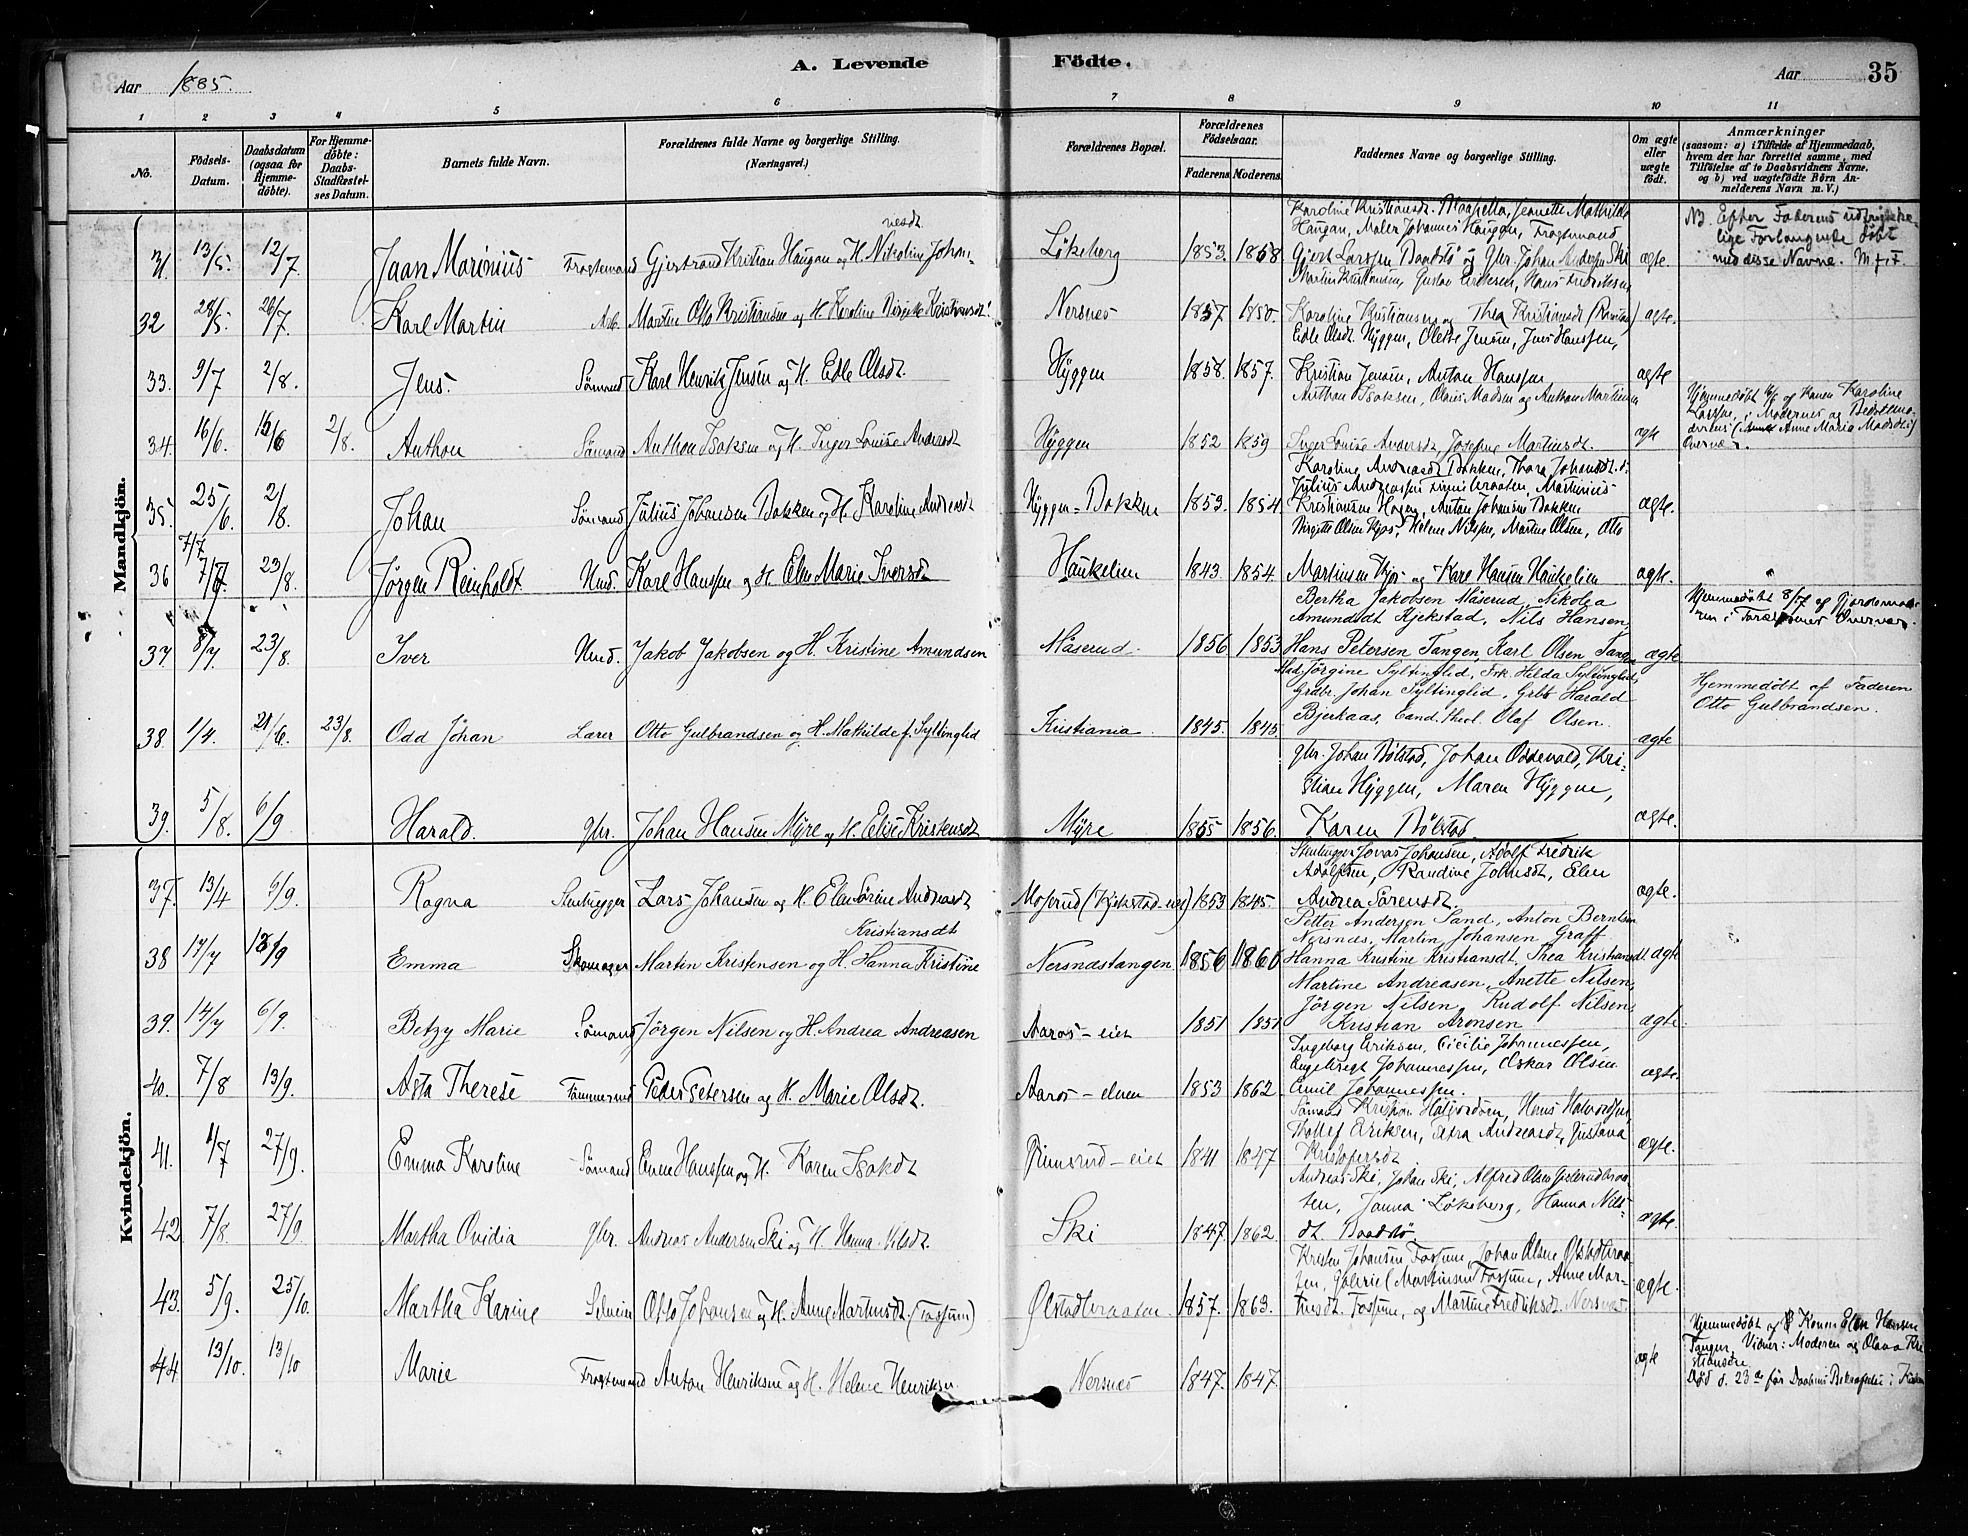 Aar 1885. A. Levende Födte. Aar 35
1 2 3 4 5 6 7 8 9 10 11
No. Födsels-Datum. Daabsdatum (ogsaa for Hjemmedöbte). For Hjemmedöbte: Daabs-Stadfæstelses Datum. Barnets fulde Navn. Forældrenes fulde Navne og borgerlige Stilling. (Næringsvei.) Forældrenes Bopæl. Forældrenes Födselsaar. Faderens Moderens. Faddernes Navne og borgerlige Stilling. Om ægte eller uægte födt. Anmærkninger (saasom: a) i Tilfælde af Hjemmedaab, hvem der har forrettet samme, med Tilföielse af to Daabsvidners Navne. og b) ved uægtefödte Börn Anmelderens Navn m. V.)
Mandkjön.
31. 13/5. 12/7 Jaan Marinius Fragtemand Gjertrand Kristian Haugan og H. Nikoline Johannesdt Lökeberg 1853. 1858 Karoline Kristiansdt. Jeanette Mathilde
Haugan, Maler Johannes Haugan, Fragtemand
Gjert Larssen Baadstö og Gbr. Johan Ski ægte.
NB Efter Faderens udtrykke-
lige Forlangende döbt
med disse Navne.
32 28/5. 26/7. Karl Martin Arb. Martin Otto Kristiansen og H. Karoline Kristiansdt. Nersnes 1857 1850. Martin Kristiansen, Gustav Eriksen, Hans Fredriksen
Karoline Kristiansen og Thea Kristiansdt ægte.
33. 9/7 2/8. Jens. Sömand Karl Henrik Jensen og H. Edle Olsdt. Hyggen 1858. 1857. Edle Olsdt. Hyggen, Olette Jensen, Jens Hanssen,
Kristian Jensen, Anton Hanssen ægte
34. 16/6. 2/8. Anthon Sömand Anthon Isaksen og H. Inger Louise Andersdt Hyggen 1852 1859 Anthon Isaksen, Olaus Madsen og Anthon Martinsen
Inger Louise Andersdt, Josefine Martinsdt. ægte
Hjemmedöbt af Konen Karoline
Larssen, i Moderens og Bedstemo-
derens (Anne Maria Madsdt's)
Overvær.
35. 25/6. 2/8. Johan Sömand Julius Johansen Bakken og H. Karoline Andreasdt Hyggen-Bakken 1853. 1854. Karoline Andreasdt Bakken, Thora Johansdt.
Julius Andreassen Martinius
Kristiansen Anton Johansen Bakken ægte.
36 7/7 23/8. Jörgen Reinholdt. Hmd. Karl Hanssen og H. Elen Marie Iversdt Haukelien 1843 1854. Birgitte Olsen Kjos, Helene Nilssen, Martin Olsen, Otto
Martinsen Kjos og Karl Hansen Haukelien ægte.
37 8/7. 23/8. Iver Hmd. Jakob Jakobsen og H. Kristine Amundsen Måserud. 1856 1853 Bertha Jakobsen Måserud, Nikolea
Amundsdt Kjekstad, Nils Hansen,
Hans Petersen Tangen, Karl Olsen Tangen ægte
Hjemmedöbt 8/7 af Gjordemode-
ren i Forældrenes Overvær.
38. 1/4. 21/6. 23/8. Odd Johan Lærer Otto Gulbrandsen og H. Mathilde f. Syltinglid Kristiania 1845. 1845. Jörgine Syltinglid, Frk. Hilda Syltinglid,
Grdbr. Johan Syltinglid, Grbr Harald
Bjerkaas, Cand. theol. Olaf Olsen. ægte
Hjemmedöbt af Faderen
Otto Gulbrandsen.
39. 5/8. 6/9 Harald. gbr. Johan Hansen Myre og H. Elise Kristensdt Myre 1855 1856. gbr. Johan Bölstad, Johan Oddevald, Kri-
stian Hyggen, Maren Hyggen,
Karen Bölstad. ægte.
Kvindekjön.
37. 13/4 6/9. Ragna Stenhugger Lars Johansen og H. Elen Sörine Andreasdt Moserud (Kjekstad-eie) 1853 1845. Stenhugger Jonas Johansen, Adolf Fredrik
Adolfsen, Randine Johnsdt, Elen
Andrea Sörensdt. ægte.
38 17/7 13/9 Emma Skomager Martin Kristensen og H. Hanna Kristine Kristiansdt Nersnæstangen 1856 1860 Petter Andersen Sand, Anton Berntsen
Nersnæs, Martin Johansen Graff
Hanna Kristine Kristiansdt, Thea Kristiansdt. ægte
39. 14/7 6/9. Betzy Marie Sömand Jörgen Nilsen og H. Andrea Andreasen Aaros-eiet 1851 1851 Martine Andreasen, Anette Nilsen,
Jörgen Nilsen, Rudolf Nilsen,
Kristian Aronsen ægte.
40. 7/8 13/9. Asta Therese Tömmermd Peder Petersen og H. Marie Olsdt. Aaros-elven 1853 1862. Ingeborg Eriksen, Cicilie Johannessen,
Engebregt Johannessen, Oskar Olsen
Emil Johannessen. ægte.
41. 1/7 27/9. Emma Karoline Sömand Even Hanssen og H. Karen Isakdt Grimsrud-eiet 1841 1847 Sömand Kristian Halvordsen, Hans Halvordsen,
Thollef Eriksen, Petra Andreasdt, Gustava
Kristofersdt ægte.
42. 7/8. 27/9. Martha Ovidia Gbr. Andreas Andersen Ski og H. Hanna Nilsdt. Ski 1847 1862 Andreas Ski, Johan Ski, Alfred Olsen
ten, Janna Lökeberg, Hanna Nils-
dt. Baadstö. ægte.
43. 5/9. 25/10. Martha Karine Otto Johansen og H. Anne Martinsdt. (Fossum) Ölstadbraaten. 1857. 1863. Kristen Johansen Fossum, Johan Olsen Ölstadbraa-
ten, Gabriel Martinsen Fossum, Anne Mar-
tinsdt. Fossum, og Martine Fredriksdt. Nersnæs ægte.
44. 13/10. 13/10 Marie Fragtemand Anton Henriksen og H. Helene Henriksen Nersnæs 1847. 1847. ægte
Hjemmedöbt af Konen Elen Hansen
Tangen, Vidner: Moderen og Olava Kri
stiansen.
Död d. 23de för Daabens Bekræftelse i Kirken